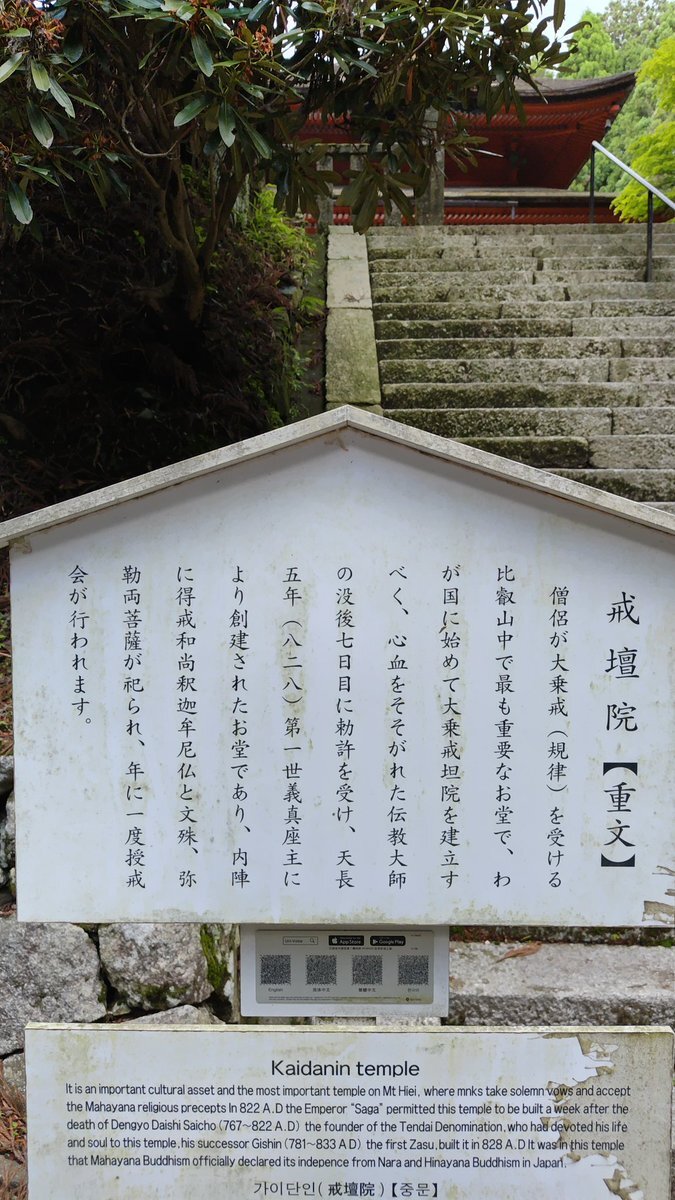 戒壇院【重文】
僧侶が大乗戒（規律）を受ける
比叡山中で最も重要なお堂で、わ
が国に始めて大乗戒坦院を建立す
べく、心血をそそがれた伝教大師
の没後七日目に勅許を受け、天長
五年（八二八）第一世義真座主に
より創建されたお堂であり、内陣
に得戒和尚釈迦牟尼仏と文殊、弥
勒両菩薩が祀られ、年に一度授戒
会が行われます。
App Store
Google Play
English
简体中文
繁體中文
한국어
Kaidanin temple
It is an important cultural asset and the most important temple on Mt Hiei, where mnks take solemn vows and accept
the Mahayana religious precepts In 822 A.D the Emperor "Saga" permitted this temple to be built a week after the
death of Dengyo Daishi Saicho (767~822 A.D) the founder of the Tendai Denomination, who had devoted his life
and soul to this temple, his successor Gishin (781~833 A.D) the first Zasu, built it in 828 A.D It was in this temple
that Mahayana Buddhism officially declared its indepence from Nara and Hinayana Buddhism in Japan.
가이단인(戒壇院)【중문】